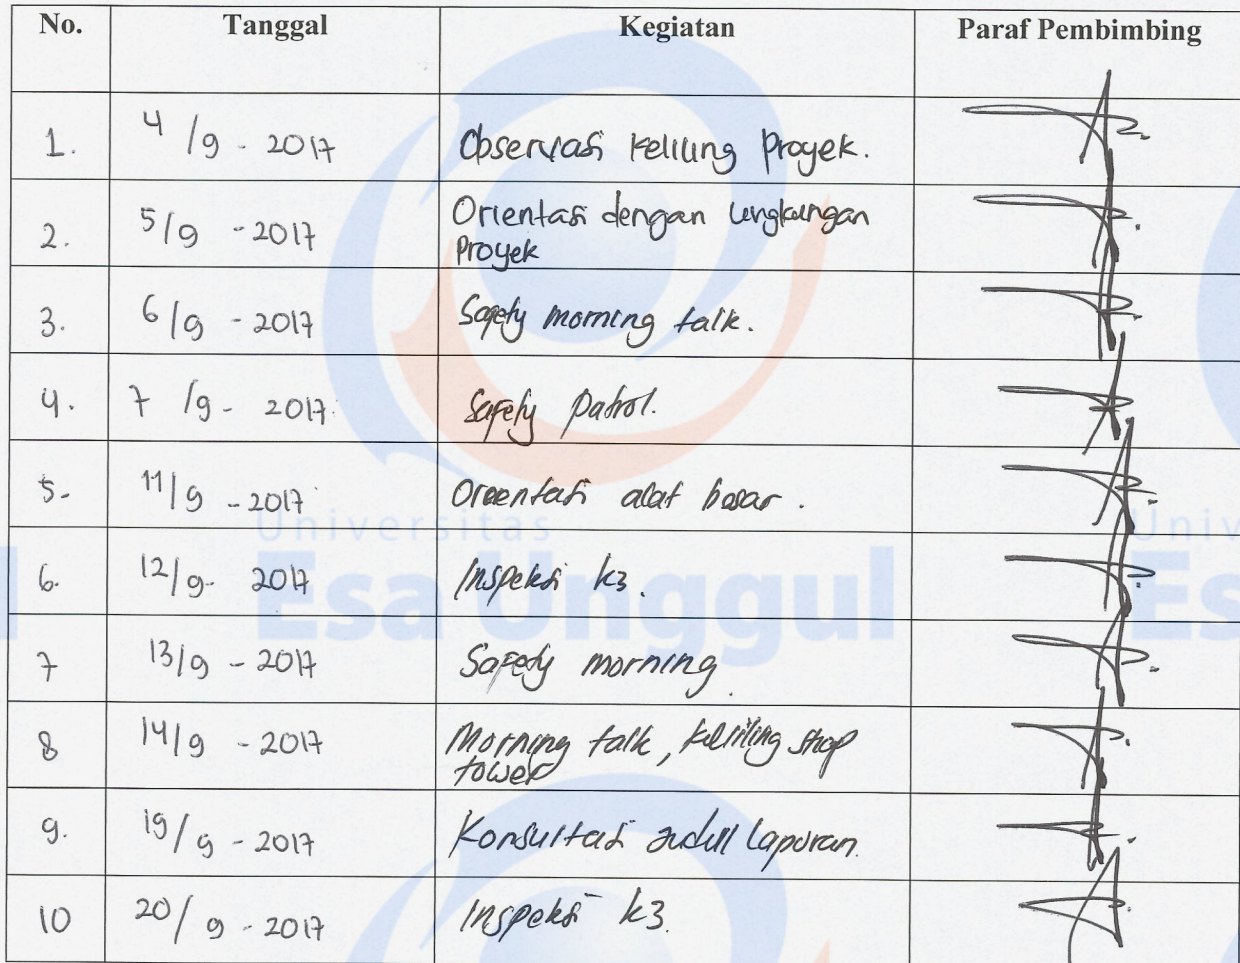 No. Tanggal Kegiatan Paraf Pembimbing
1. 4/9 - 2017 Observasi keliling Proyek.
2. 5/9 - 2017 Orientasi dengan lingkungan
Proyek
3. 6/9 - 2017 Safety morning talk.
4. 7/9 - 2017 Safety Patrol.
5. 11/9 - 2017 Oreentasi alat besar.
6. 12/9 - 2017 Inspeksi k3.
7 13/9 - 2017 Safety morning.
8 14/9 - 2017 Morning talk, keliling shop
tower
9. 19/9 - 2017 Konsultasi Judul laporan.
10 20/9 - 2017 Inspeksi k3.
Universitas
Esa Unggul